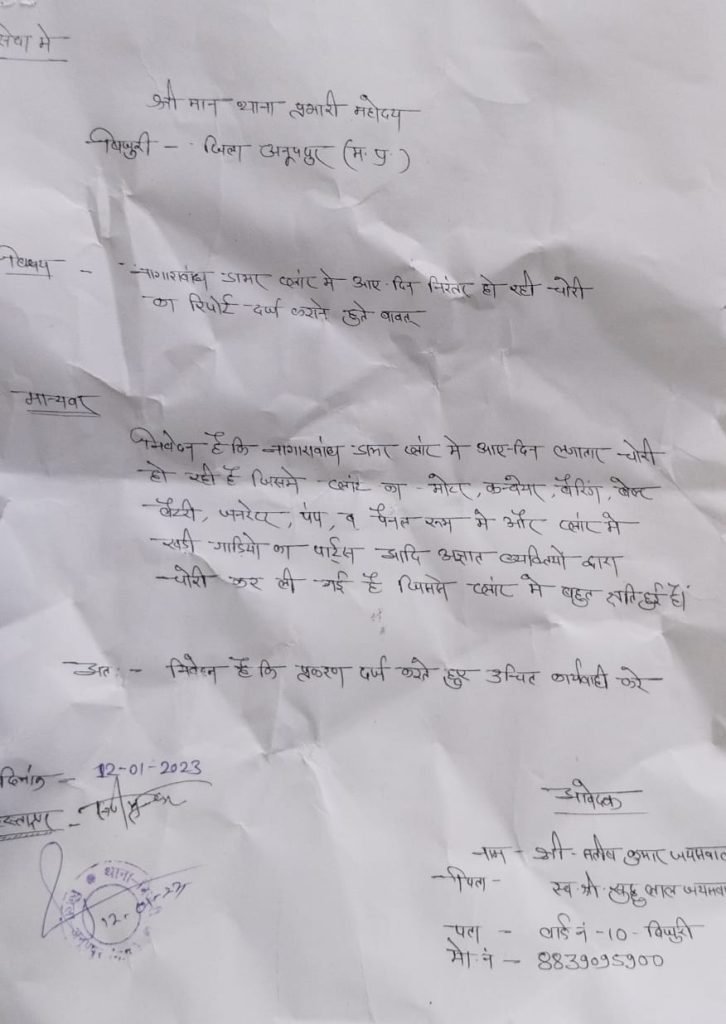 सेवा मे
श्री मान थाना प्रभारी महोदय
बिजुरी - जिला अनूपपुर (म.प्र.)
विषय - नागाराबांध डामर प्लांट मे आए-दिन निरंतर हो रही चोरी
का रिपोर्ट दर्ज कराने हुते बावत्
मान्यवर
निवेदन है कि नागाराबांध डामर प्लांट मे आए-दिन लगातार चोरी
हो रही है जिसमे प्लांट का मोटर, कन्वेयर, बैरिंग, बेल्ट
बैटरी, जनरेटर, पंप, व पैनल रूम मे और प्लांट मे
खडी गाडियो का पार्ट्स आदि अज्ञात व्यक्तियो द्वारा
चोरी कर ली गई है जिसमे प्लांट मे बहुत क्षति हुई है।
अतः - निवेदन है कि प्रकरण दर्ज करते हुए उचित कार्यवाही करे
दिनांक - 12-01-2023
हस्ताक्षर -
थाना
आवेदक
नाम - श्री सतीष कुमार जयसवाल
पिता - स्व श्री लाल जयसवाल
पता - वार्ड नं -10- बिजुरी
मो. नं - 8839095900